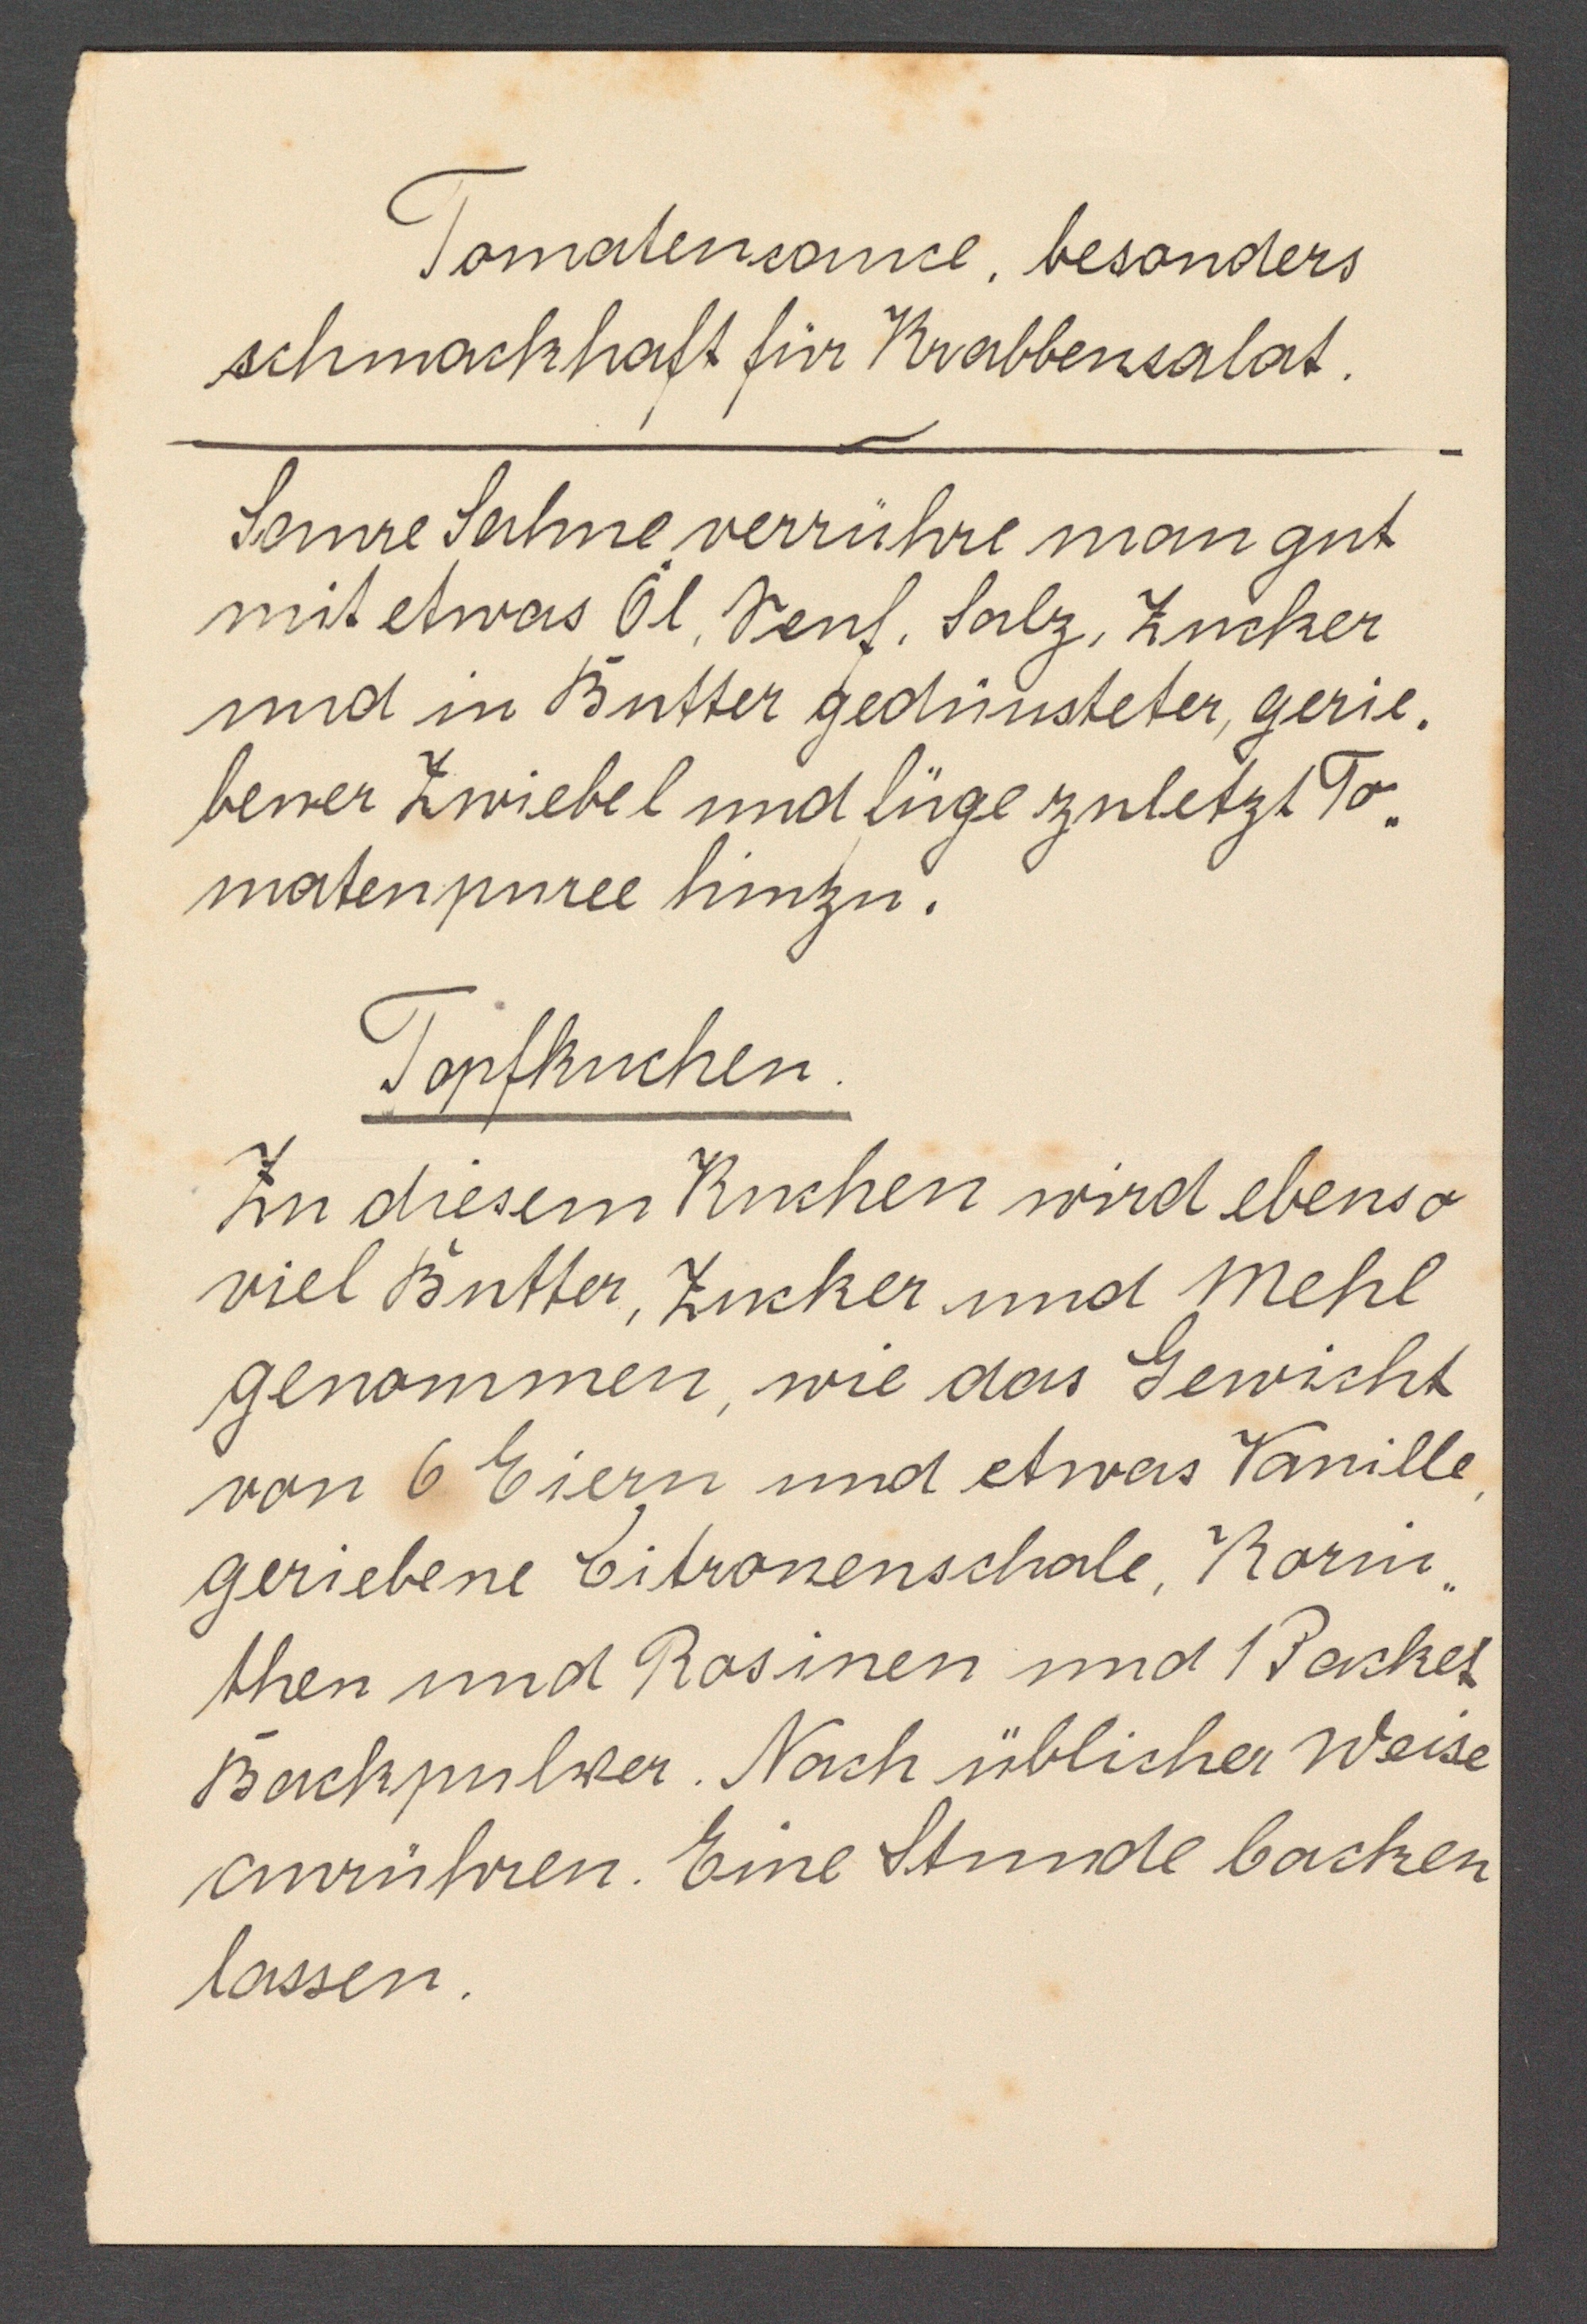 Tomatensauce, besonders
schmackhaft für Krabbensalat.
Saure Sahne verrühre man gut
mit etwas Öl, Senf, Salz, Zucker
und in Butter gedünsteter, gerie-
bener Zwiebel und füge zuletzt To-
matenpuree hinzu.
Topfkuchen.
Zu diesem Kuchen wird ebenso
viel Butter, Zucker und Mehl
genommen, wie das Gewicht
von 6 Eiern und etwas Vanille,
geriebene Citronenschale, Korin-
then und Rosinen und 1 Packet
Backpulver. Nach üblicher Weise
anrühren. Eine Stunde backen
lassen.